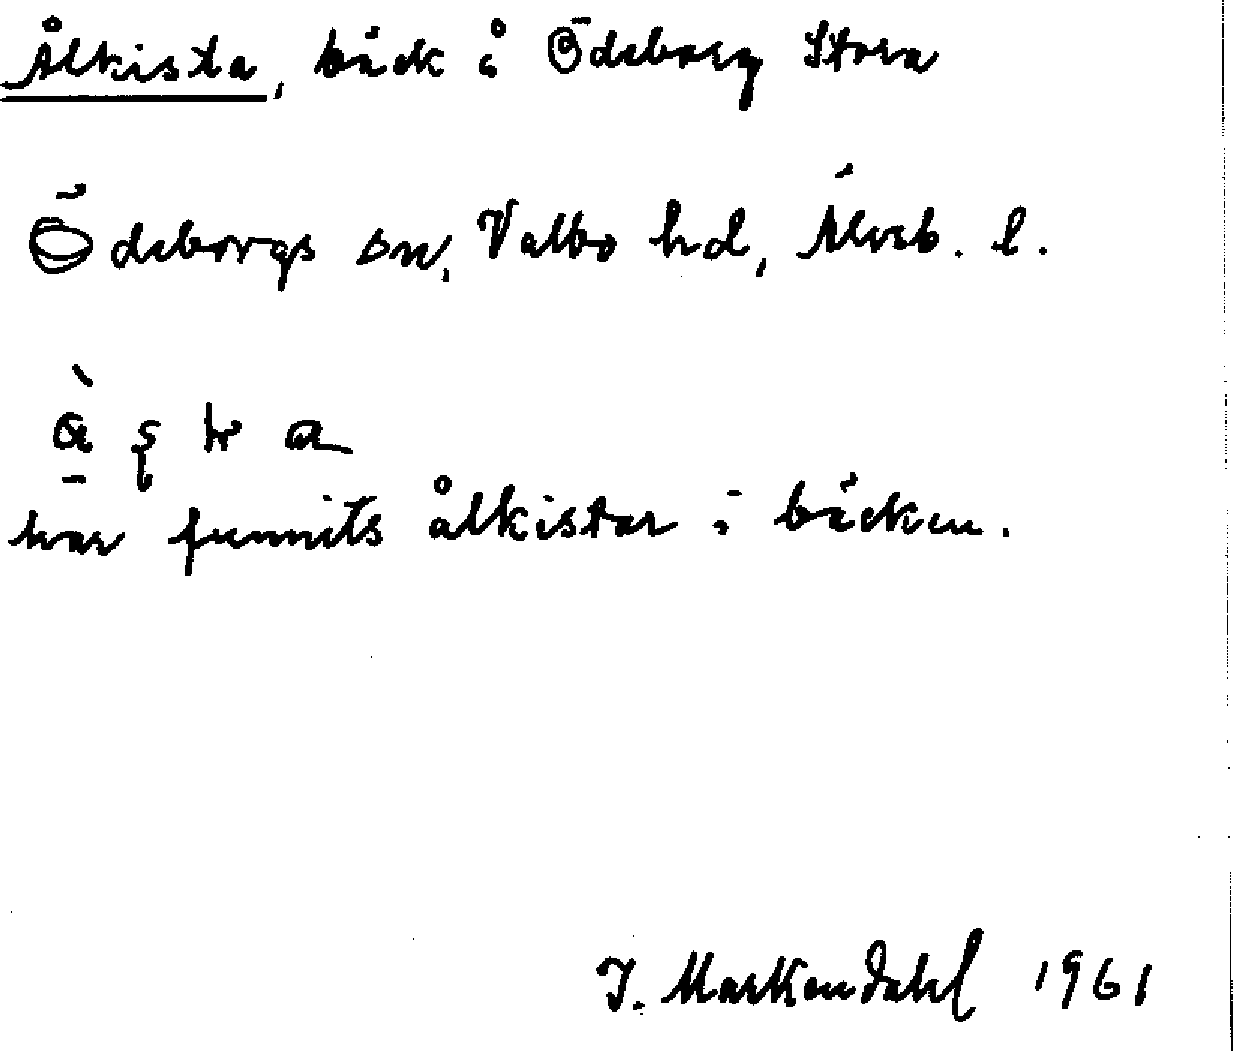 Ålkista, bäck å Ödeborg Stora
Ödeborgs sn, Valbo hd, Älvsb. l.
har funnits ålkistor i bäcken.
J. Markendahl 1961